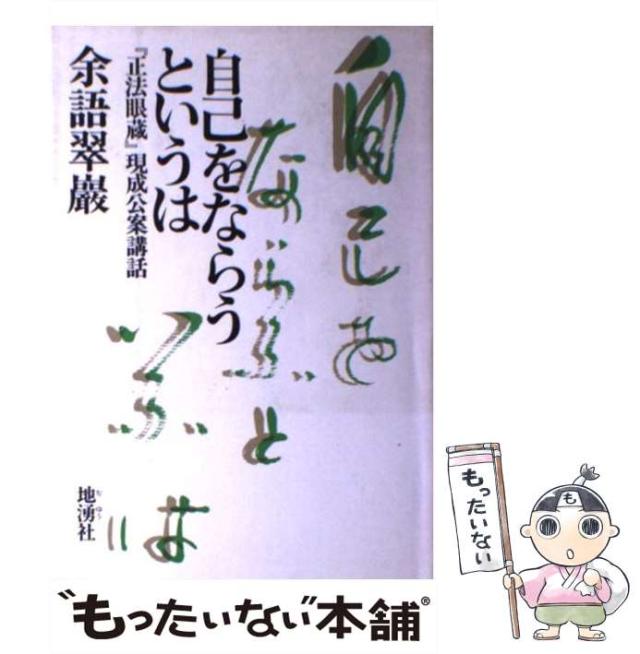 自己を
ならふと
いふは
自己をならう
というは
『正法眼蔵』現成公案講話
余語翠巖
地湧社
ち ゆう
"もったいない"本舗®
もったいない
も